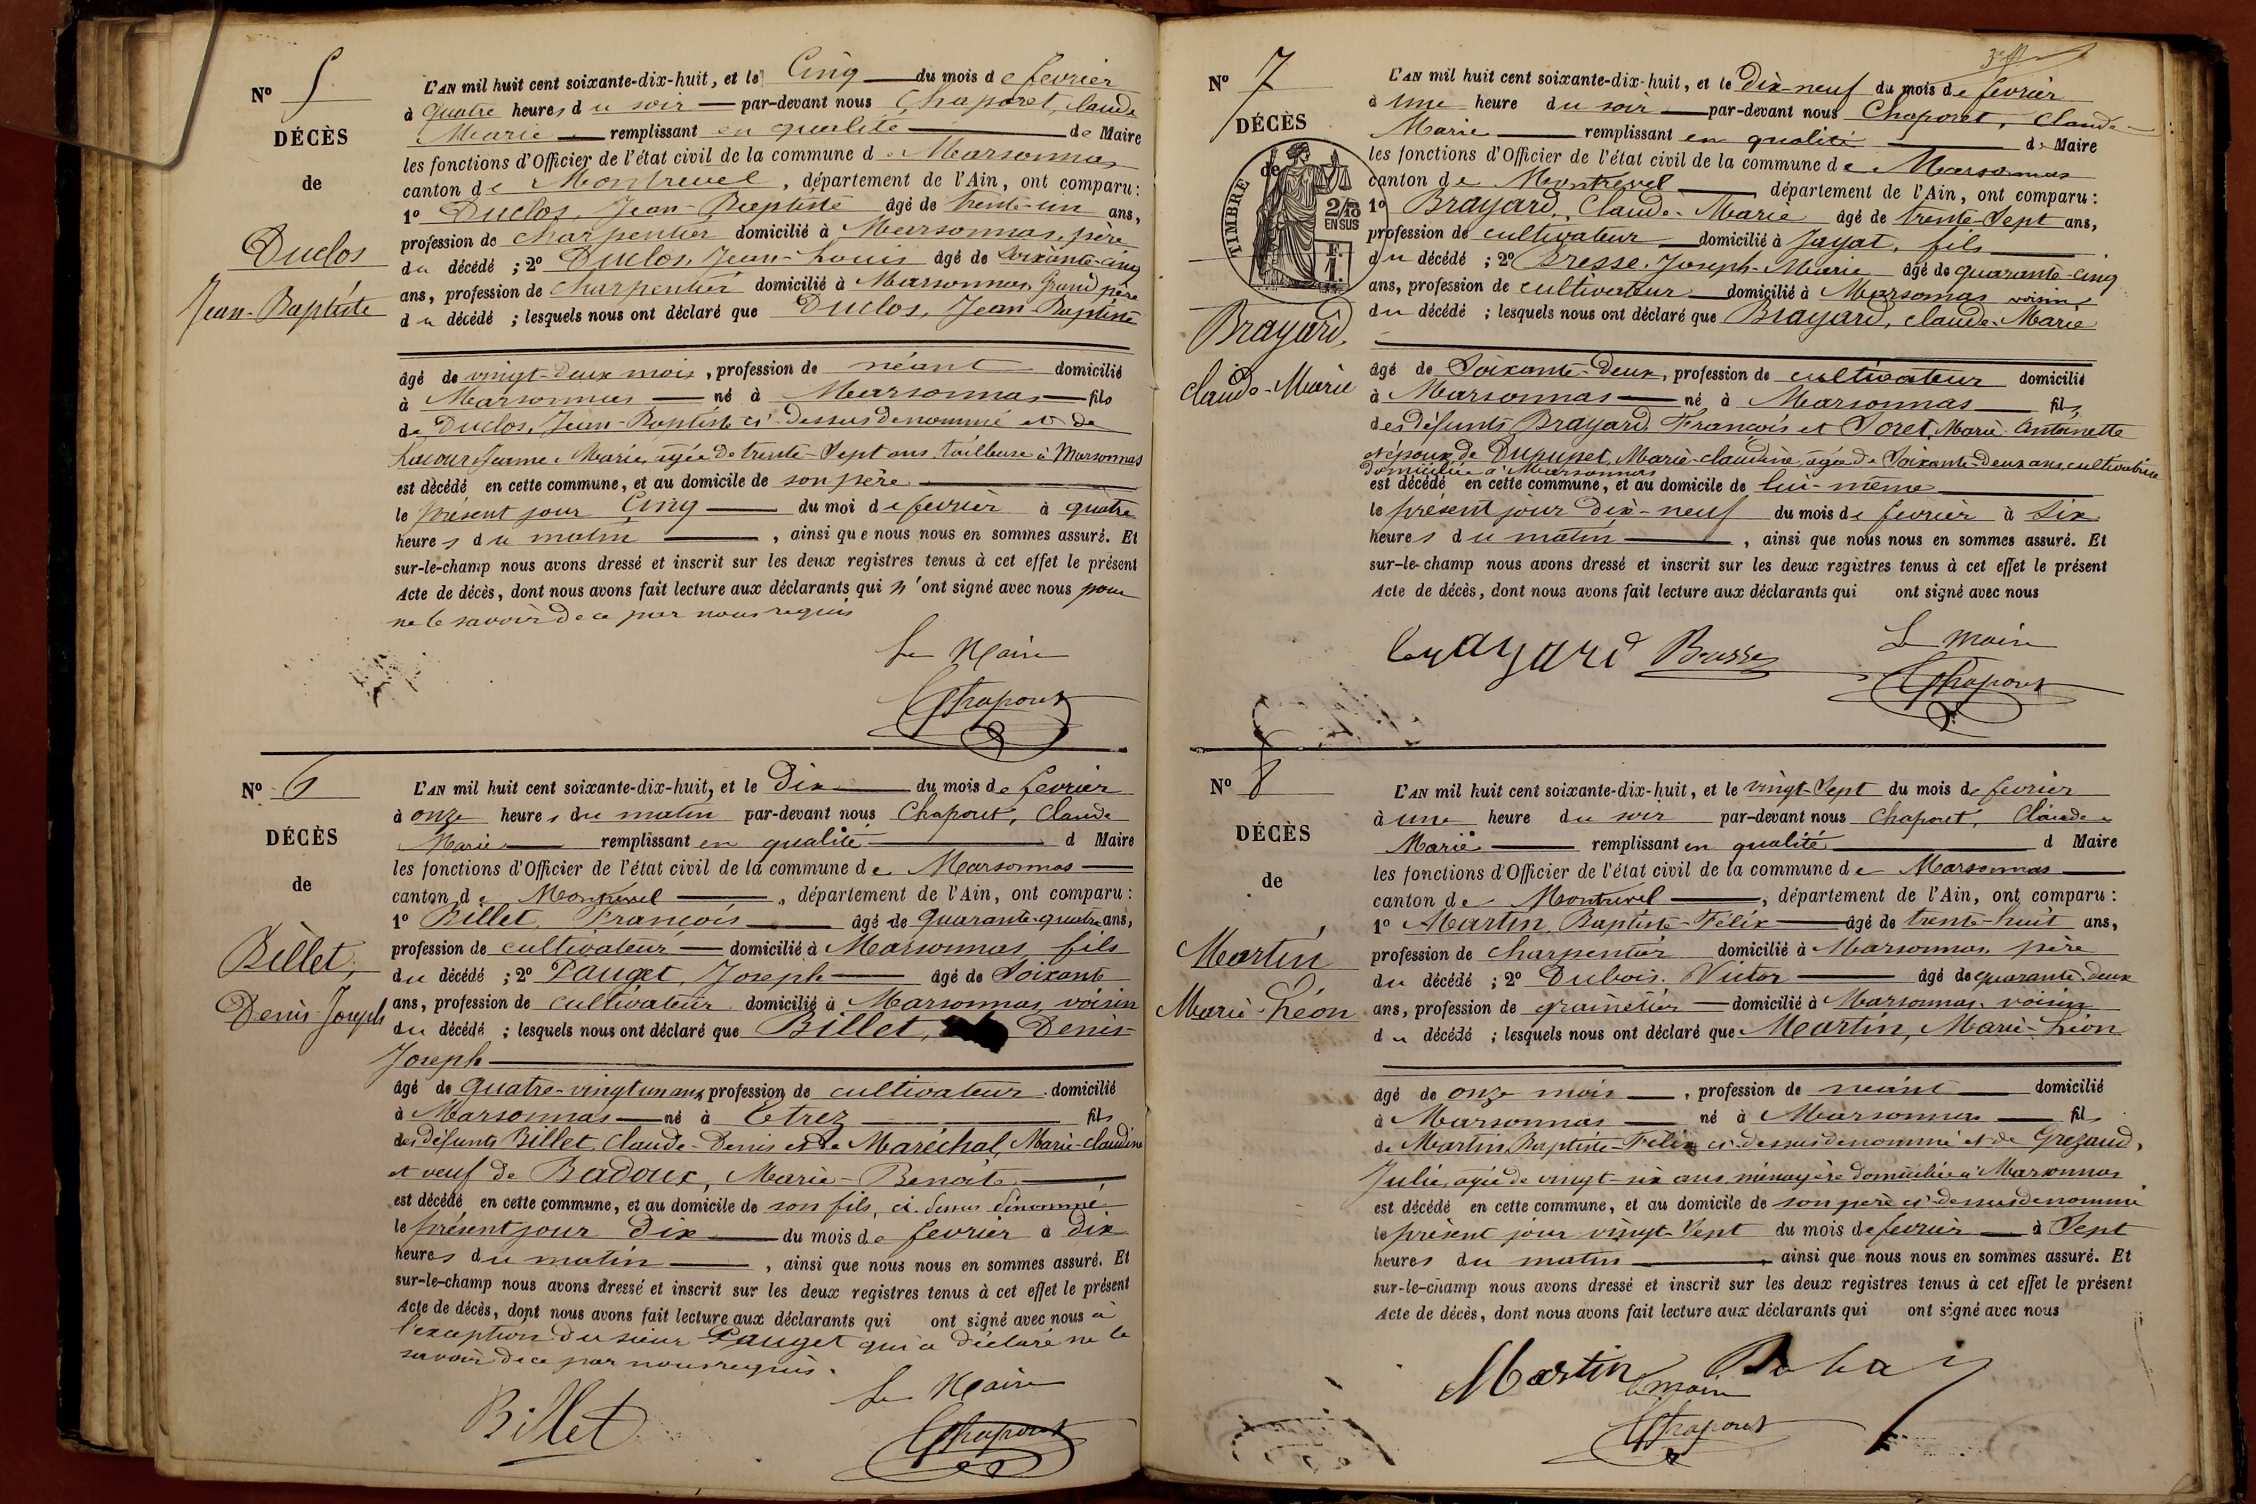 N° 5
DÉCÈS
de
Duclos
Jean-Baptiste
L'AN mil huit cent soixante-dix-huit, et le Cinq du mois de fevrier
à quatre heures du soir par-devant nous Chaporet, Claude
Marie remplissant en qualité de Maire
les fonctions d'Officier de l'état civil de la commune d Marsonnas
canton de Montrevel, département de l'Ain, ont comparu:
1° Duclos, Jean-Baptiste âgé de trente-un ans,
profession de charpentier domicilié à Marsonnas, père
du décédé ; 2° Duclos, Jean-Louis âgé de soixante-cinq
ans, profession de charpentier domicilié à Marsonnas, Grand père
du décédé ; lesquels nous ont déclaré que Duclos, Jean-Baptiste
âgé de vingt-deux mois, profession de néant domicilié
à Marsonnas né à Marsonnas fils
de Duclos, Jean-Baptiste ci-dessus denommé et de
Jeanne-Marie, agée de trente-sept ans, tailleuse à Marsonnas
est décédé en cette commune, et au domicile de son père
le présent jour Cinq du moi de fevrier à quatre
heures du matin, ainsi que nous nous en sommes assuré. Et
sur-le-champ nous avons dressé et inscrit sur les deux registres tenus à cet effet le présent
Acte de décès, dont nous avons fait lecture aux déclarants qui n'ont signé avec nous pour
ne le savoir de ce par nous requis
Le Maire
Chaporet
N° 6
DÉCÈS
de
Billet,
Denis-Joseph
L'AN mil huit cent soixante-dix-huit, et le Dix du mois de fevrier
à onze heures du matin par-devant nous Chaporet, Claude
Marie remplissant en qualité d Maire
les fonctions d'Officier de l'état civil de la commune de Marsonnas
canton de Montrevel, département de l'Ain, ont comparu:
1° Billet, François âgé de quarante-quatre ans,
profession de cultivateur domicilié à Marsonnas, fils
du décédé ; 2° Pauget, Joseph âgé de Soixante
ans, profession de cultivateur domicilié à Marsonnas, voisin
du décédé ; lesquels nous ont déclaré que Billet, Denis-
Joseph
âgé de quatre-vingt un ans, profession de cultivateur domicilié
à Marsonnas né à Etrez fils
des défunts Billet, Claude-Denis et de Maréchal, Marie-Claudine
et veuf de Badoux, Marie-Benoite
est décédé en cette commune, et au domicile de son fils, ci-dessus dénommé
le présent jour Dix du mois de fevrier à dix
heures du matin, ainsi que nous nous en sommes assuré. Et
sur-le-champ nous avons dressé et inscrit sur les deux registres tenus à cet effet le présent
Acte de décès, dont nous avons fait lecture aux déclarants qui ont signé avec nous à
l'exception du sieur Pauget qui a déclaré ne le
savoir de ce par nous requis.
Le Maire
Billet
Chaporet
N° 7
DÉCÈS
de
TIMBRE
2/10
EN SUS
F.
1.
Brayard,
Claude-Marie
L'AN mil huit cent soixante-dix-huit, et le Dix-neuf du mois de fevrier
à une heure du soir par-devant nous Chaporet, Claude-
Marie remplissant en qualité de Maire
les fonctions d'Officier de l'état civil de la commune de Marsonnas
canton de Montrevel département de l'Ain, ont comparu:
1° Brayard, Claude-Marie âgé de trente-sept ans,
profession de cultivateur domicilié à Jayat, fils
du décédé ; 2° Bresse, Joseph-Marie âgé de quarante-cinq
ans, profession de cultivateur domicilié à Marsonnas voisin
du décédé ; lesquels nous ont déclaré que Brayard, Claude-Marie
âgé de Soixante-deux, profession de cultivateur domicilié
à Marsonnas né à Marsonnas fils
des défunts Brayard, François et Poret, Marie-Antoinette
époux de Dupupet, Marie-Claudine, agée de Soixante-deux ans, cultivatrice
domiciliée à Marsonnas
est décédé en cette commune, et au domicile de lui-même
le présent jour dix-neuf du mois de fevrier à six
heures du matin, ainsi que nous nous en sommes assuré. Et
sur-le-champ nous avons dressé et inscrit sur les deux registres tenus à cet effet le présent
Acte de décès, dont nous avons fait lecture aux déclarants qui ont signé avec nous
Le Maire
Brayard Bresse
Chaporet
N° 8
DÉCÈS
de
Martin
Marie-Léon
L'AN mil huit cent soixante-dix-huit, et le vingt-sept du mois de fevrier
à une heure du soir par-devant nous Chaporet, Claude
Marie remplissant en qualité d Maire
les fonctions d'Officier de l'état civil de la commune de Marsonnas
canton de Montrevel, département de l'Ain, ont comparu:
1° Martin, Baptiste-Félix âgé de trente-huit ans,
profession de charpentier domicilié à Marsonnas, père
du décédé ; 2° Dubois, Victor âgé de quarante-deux
ans, profession de grainetier domicilié à Marsonnas, voisin
du décédé ; lesquels nous ont déclaré que Martin, Marie-Léon
âgé de onze mois, profession de néant domicilié
à Marsonnas né à Marsonnas fils
de Martin, Baptiste-Félix ci-dessus denommé et de Grezaud,
Julie, agée de vingt-six ans, ménagère domiciliée à Marsonnas
est décédé en cette commune, et au domicile de son père ci-dessus denommé
le présent jour vingt-sept du mois de fevrier à sept
heures du matin ainsi que nous nous en sommes assuré. Et
sur-le-champ nous avons dressé et inscrit sur les deux registres tenus à cet effet le présent
Acte de décès, dont nous avons fait lecture aux déclarants qui ont signé avec nous
Martin
Le Maire
Chaporet